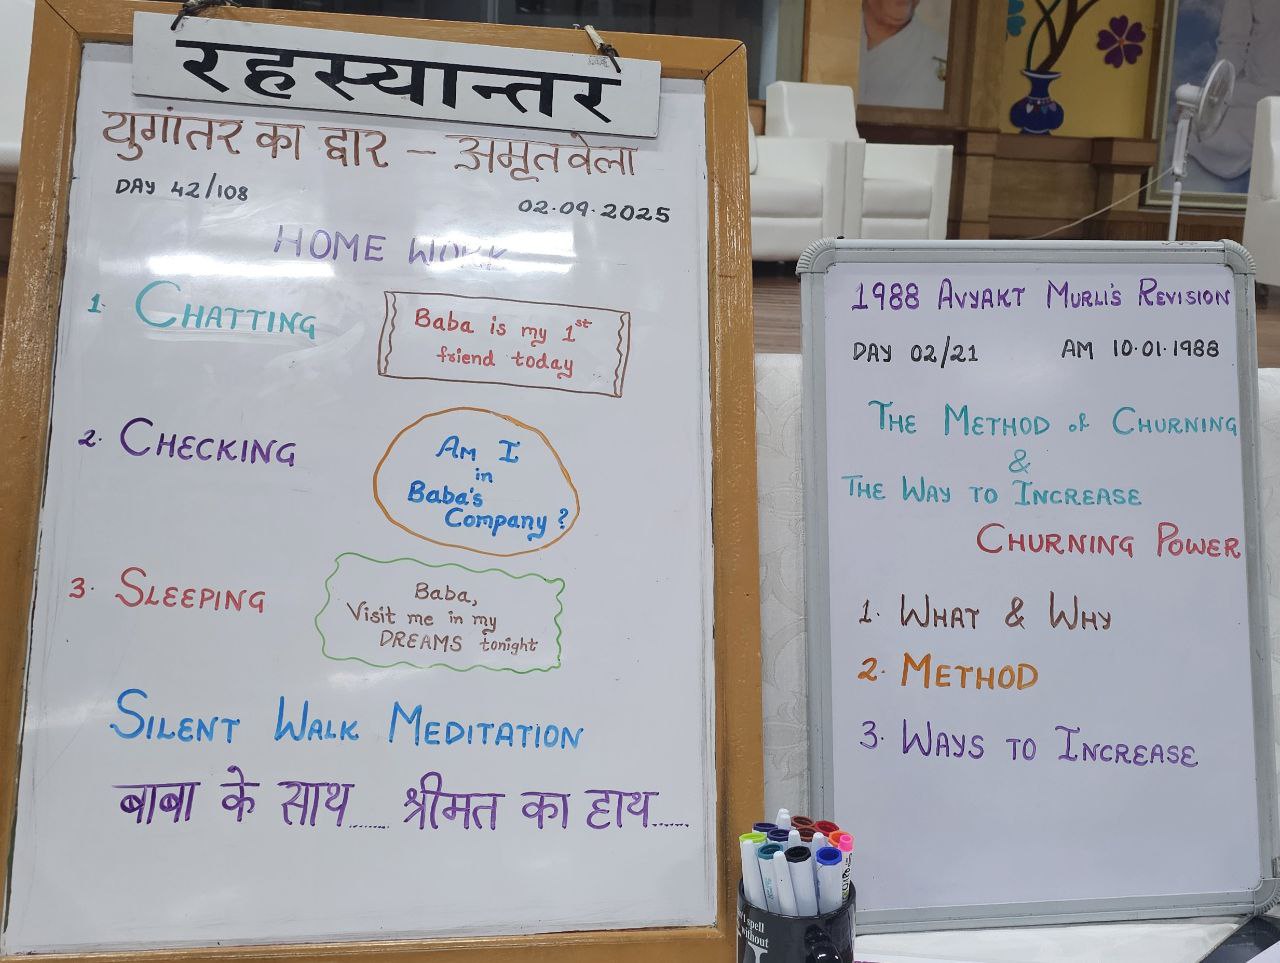 रहस्यान्तर
युगांतर का द्वार – अमृतवेला
DAY 42/108
02.09.2025
HOME WORK
1. CHATTING
Baba is my 1st
friend today
2. CHECKING
AM I
in
Baba's
Company?
3. SLEEPING
Baba,
Visit me in my
DREAMS tonight
SILENT WALK MEDITATION
बाबा के साथ........ श्रीमत का हाथ......
1988 AVYAKT MURLI'S REVISION
DAY 02/21
AM 10.01.1988
THE METHOD of CHURNING
&
THE WAY TO INCREASE
CHURNING POWER
1. WHAT & WHY
2. METHOD
3. WAYS TO INCREASE
spell
without